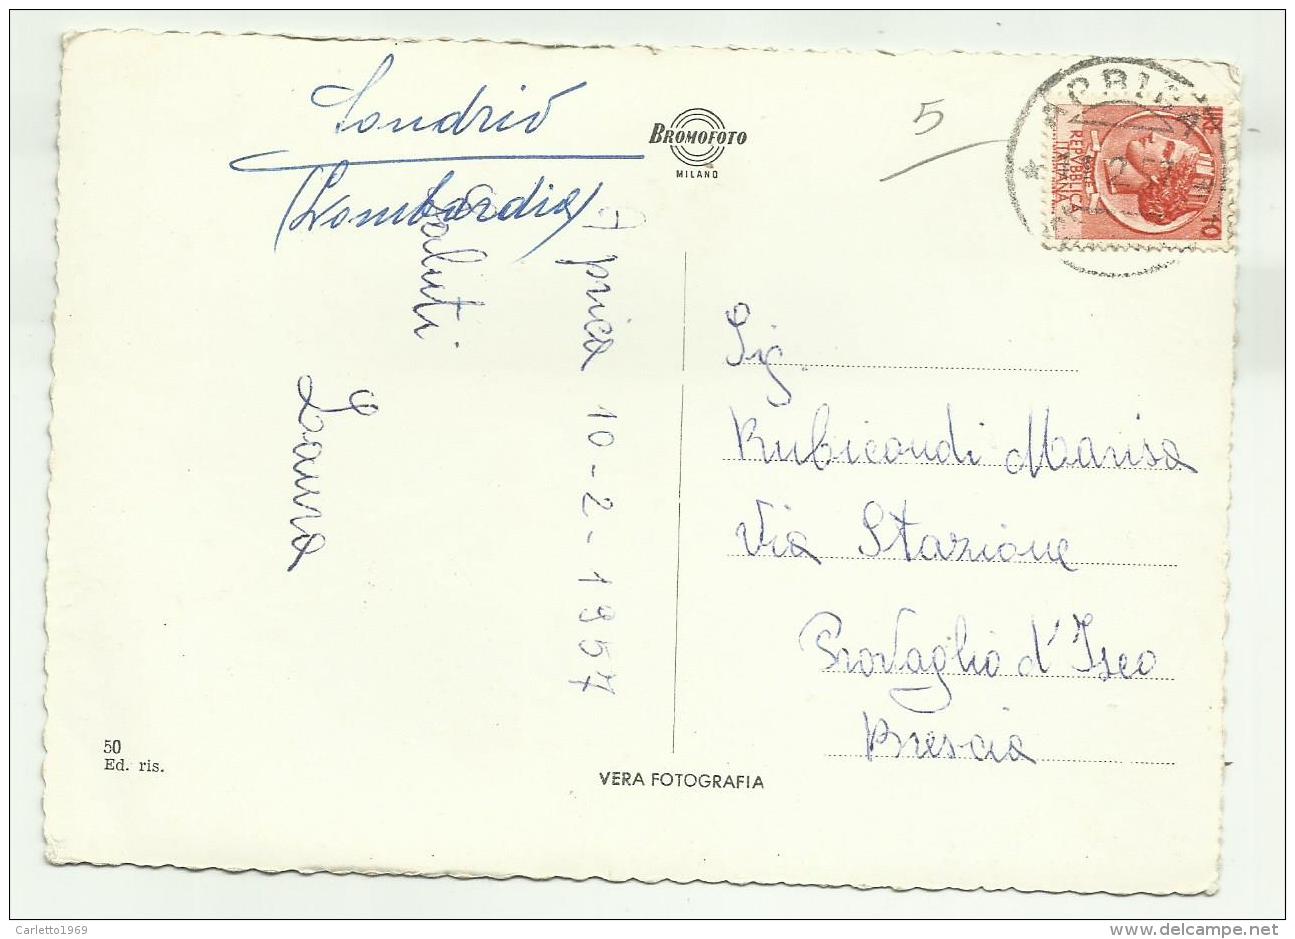 Sondrio
(Lombardia)
BROMOFOTO
MILANO
5
APRICA
LIRE 10
REPVBBLICA
ITALIANA
Aprica 10-2-1957
Saluti
Laura
Sig.
Rubicondi Marisa
Via Stazione
Provaglio d'Iseo
Brescia
50
Ed. ris.
VERA FOTOGRAFIA
Carletto1969
delcampe.net